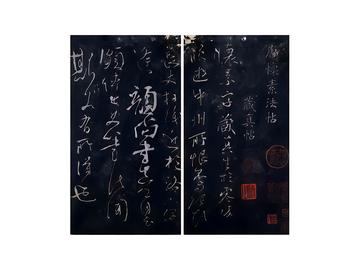 臨懷素法帖
藏真帖
懷素字藏真生於零陵
晚遊中州所恨不與張顛
長史相識近於洛下偶
逢顏尚書真卿自云
頗傳長史筆法聞
斯有所得也